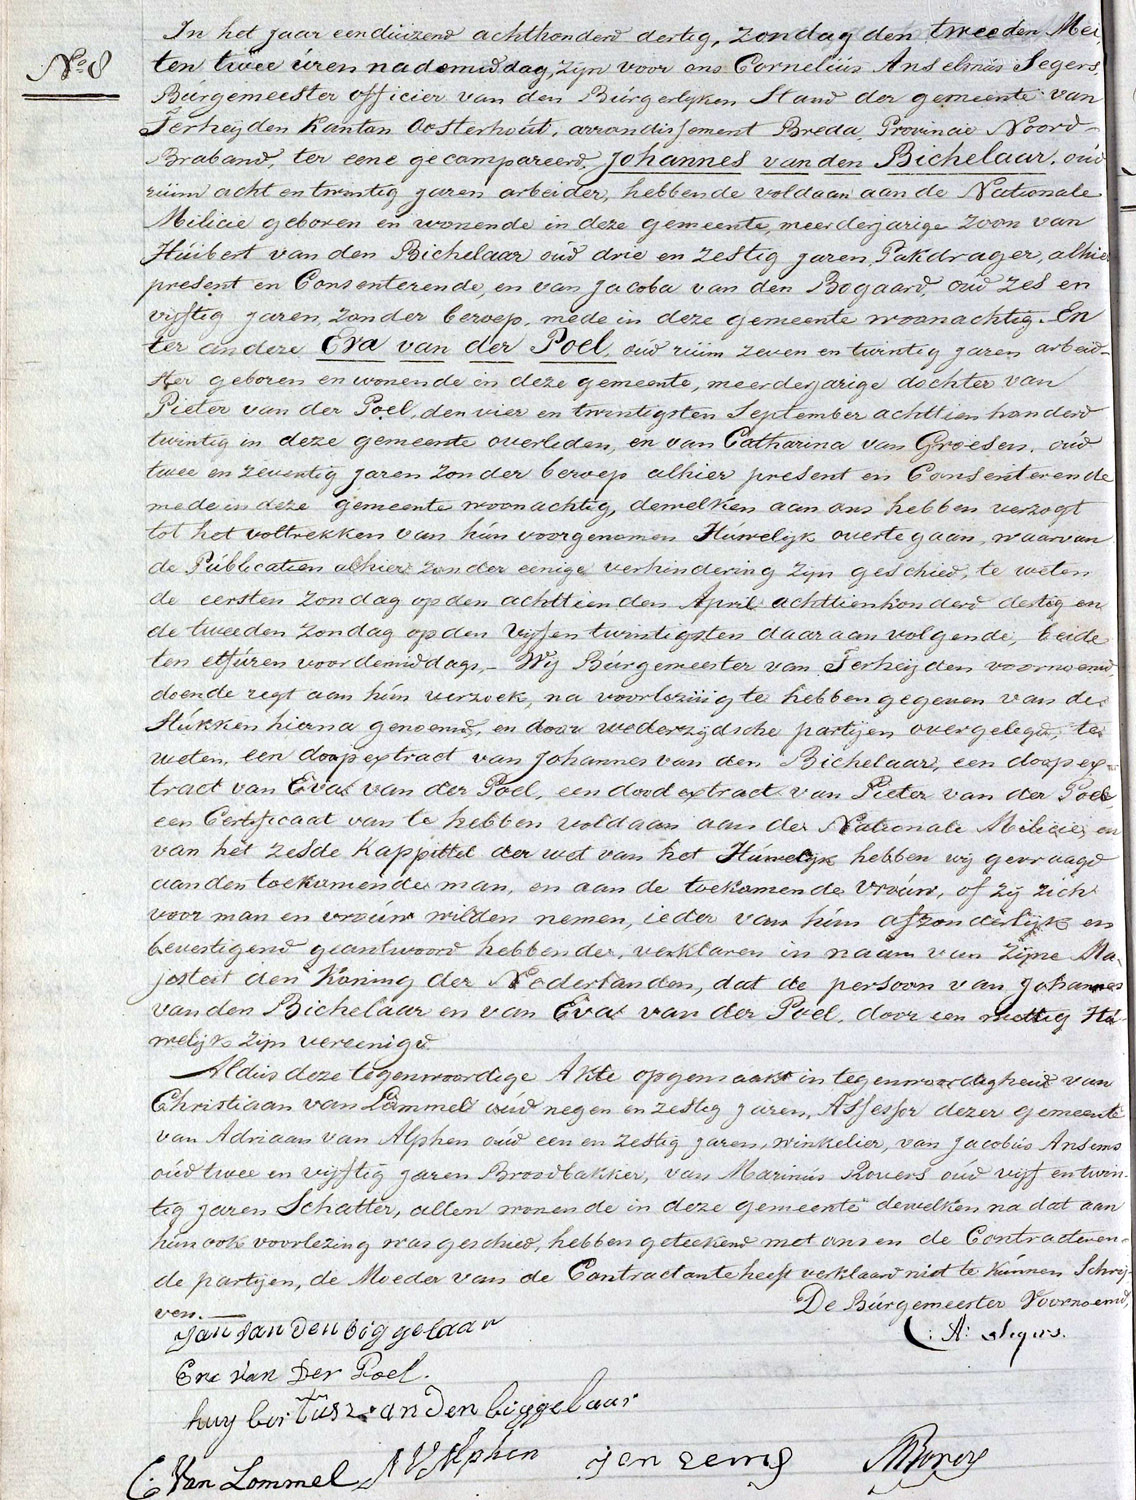 No 8
In het jaar eenduizend achthonderd dertig, zondag den tweeden Mei,
ten twee úren nademiddag, zijn voor ons Corneliús Anselmús Segers,
Búrgemeester officier van den Búrgerlijken Stand der gemeente van
Terheijden Kanton Oosterhoút, arrondissement Breda Provincie Noord-
Braband, ter eene gecompareerd, Johannes van den Bichelaar, oúd
rúim acht en twintig jaren arbeider, hebbende voldaan aan de Nationale
Milicie geboren en wonende in deze gemeente, meerderjarige zoon van
Húibert van den Bichelaar oúd drie en zestig jaren, Pakdrager, alhier
present en Consenterende, en van Jacoba van den Bogaard, oúd zes en
vijftig jaren, zonder beroep, mede in deze gemeente woonachtig. En
ter andere Eva van der Poel, oúd rúim zeven en twintig jaren arbeid-
ster geboren en wonende in deze gemeente, meerderjarige dochter van
Pieter van der Poel, den vier en twintigsten September achttien honderd
twintig in deze gemeente overleden, en van Catharina van Groesen, oúd
twee en zeventig jaren zonder beroep alhier present en Consenterende
mede in deze gemeente woonachtig, dewelken aan ons hebben verzogt
tot het voltrekken van hún voorgenomen Húwelijk overtegaan, waarvan
de Públicatien alhier zonder eenige verhindering zijn geschied, te weten
de eersten zondag op den achttienden April achttienhonderd dertig en
de tweeden zondag op den vijfentwintigsten daaraanvolgende, beide
ten elf úren voordemiddags, - Wij Búrgemeester van Terheijden voornoemd,
doende regt aan hún verzoek, na voorlezing te hebben gegeven van de
Stúkken hierna genoemd, en door wederzijdsche partijen overgelegd, te
weten, een doopextract van Johannes van den Bichelaar, een doopex-
tract van Eva van der Poel, een doodextract van Pieter van der Poel
een Certificaat van te hebben voldaan aan de Nationale Milicie, en
van het zesde Kappittel der wet van het Húwelijk hebben wij gevraagd
aan den toekomende man, en aan de toekomende vroúw, of zij zich
voor man en vrouw wilden nemen, ieder van hún afzonderlijk en
bevestigend geantwoord hebbende, verklaren in naam van Zijne Ma-
jesteit den Koning der Nederlanden, dat de persoon van Johannes
van den Bichelaar en van Eva van der Poel, door een wettig Hú-
welijk zijn vereenigd.
Aldús deze tegenwoordige Akte opgemaakt in tegenwoordigheid van
Christiaan van Lommel oúd negen en zestig jaren, Assessor dezer gemeente
van Adriaan van Alphen oúd een en zestig jaren, winkelier, van Jacobús Ansems
oúd twee en vijftig jaren Broodbakker, van Marinús Rovers oúd vijf en twin-
tig jaren Schatter, allen wonende in deze gemeente dewelken na dat aan
hún ook voorlezing was geschied, hebben geteekend met ons en de Contracteren-
de partijen, de Moeder van de Contractante heeft verklaard niet te kúnnen Schrij-
ven.
De Búrgemeester Voornoemd,
Jan van den biggelaar
C: A: Segers.
Eva van Der Poel.
huybertus van den biggelaar
C. Van Lommel A V Alphen Jan sems M Rovers